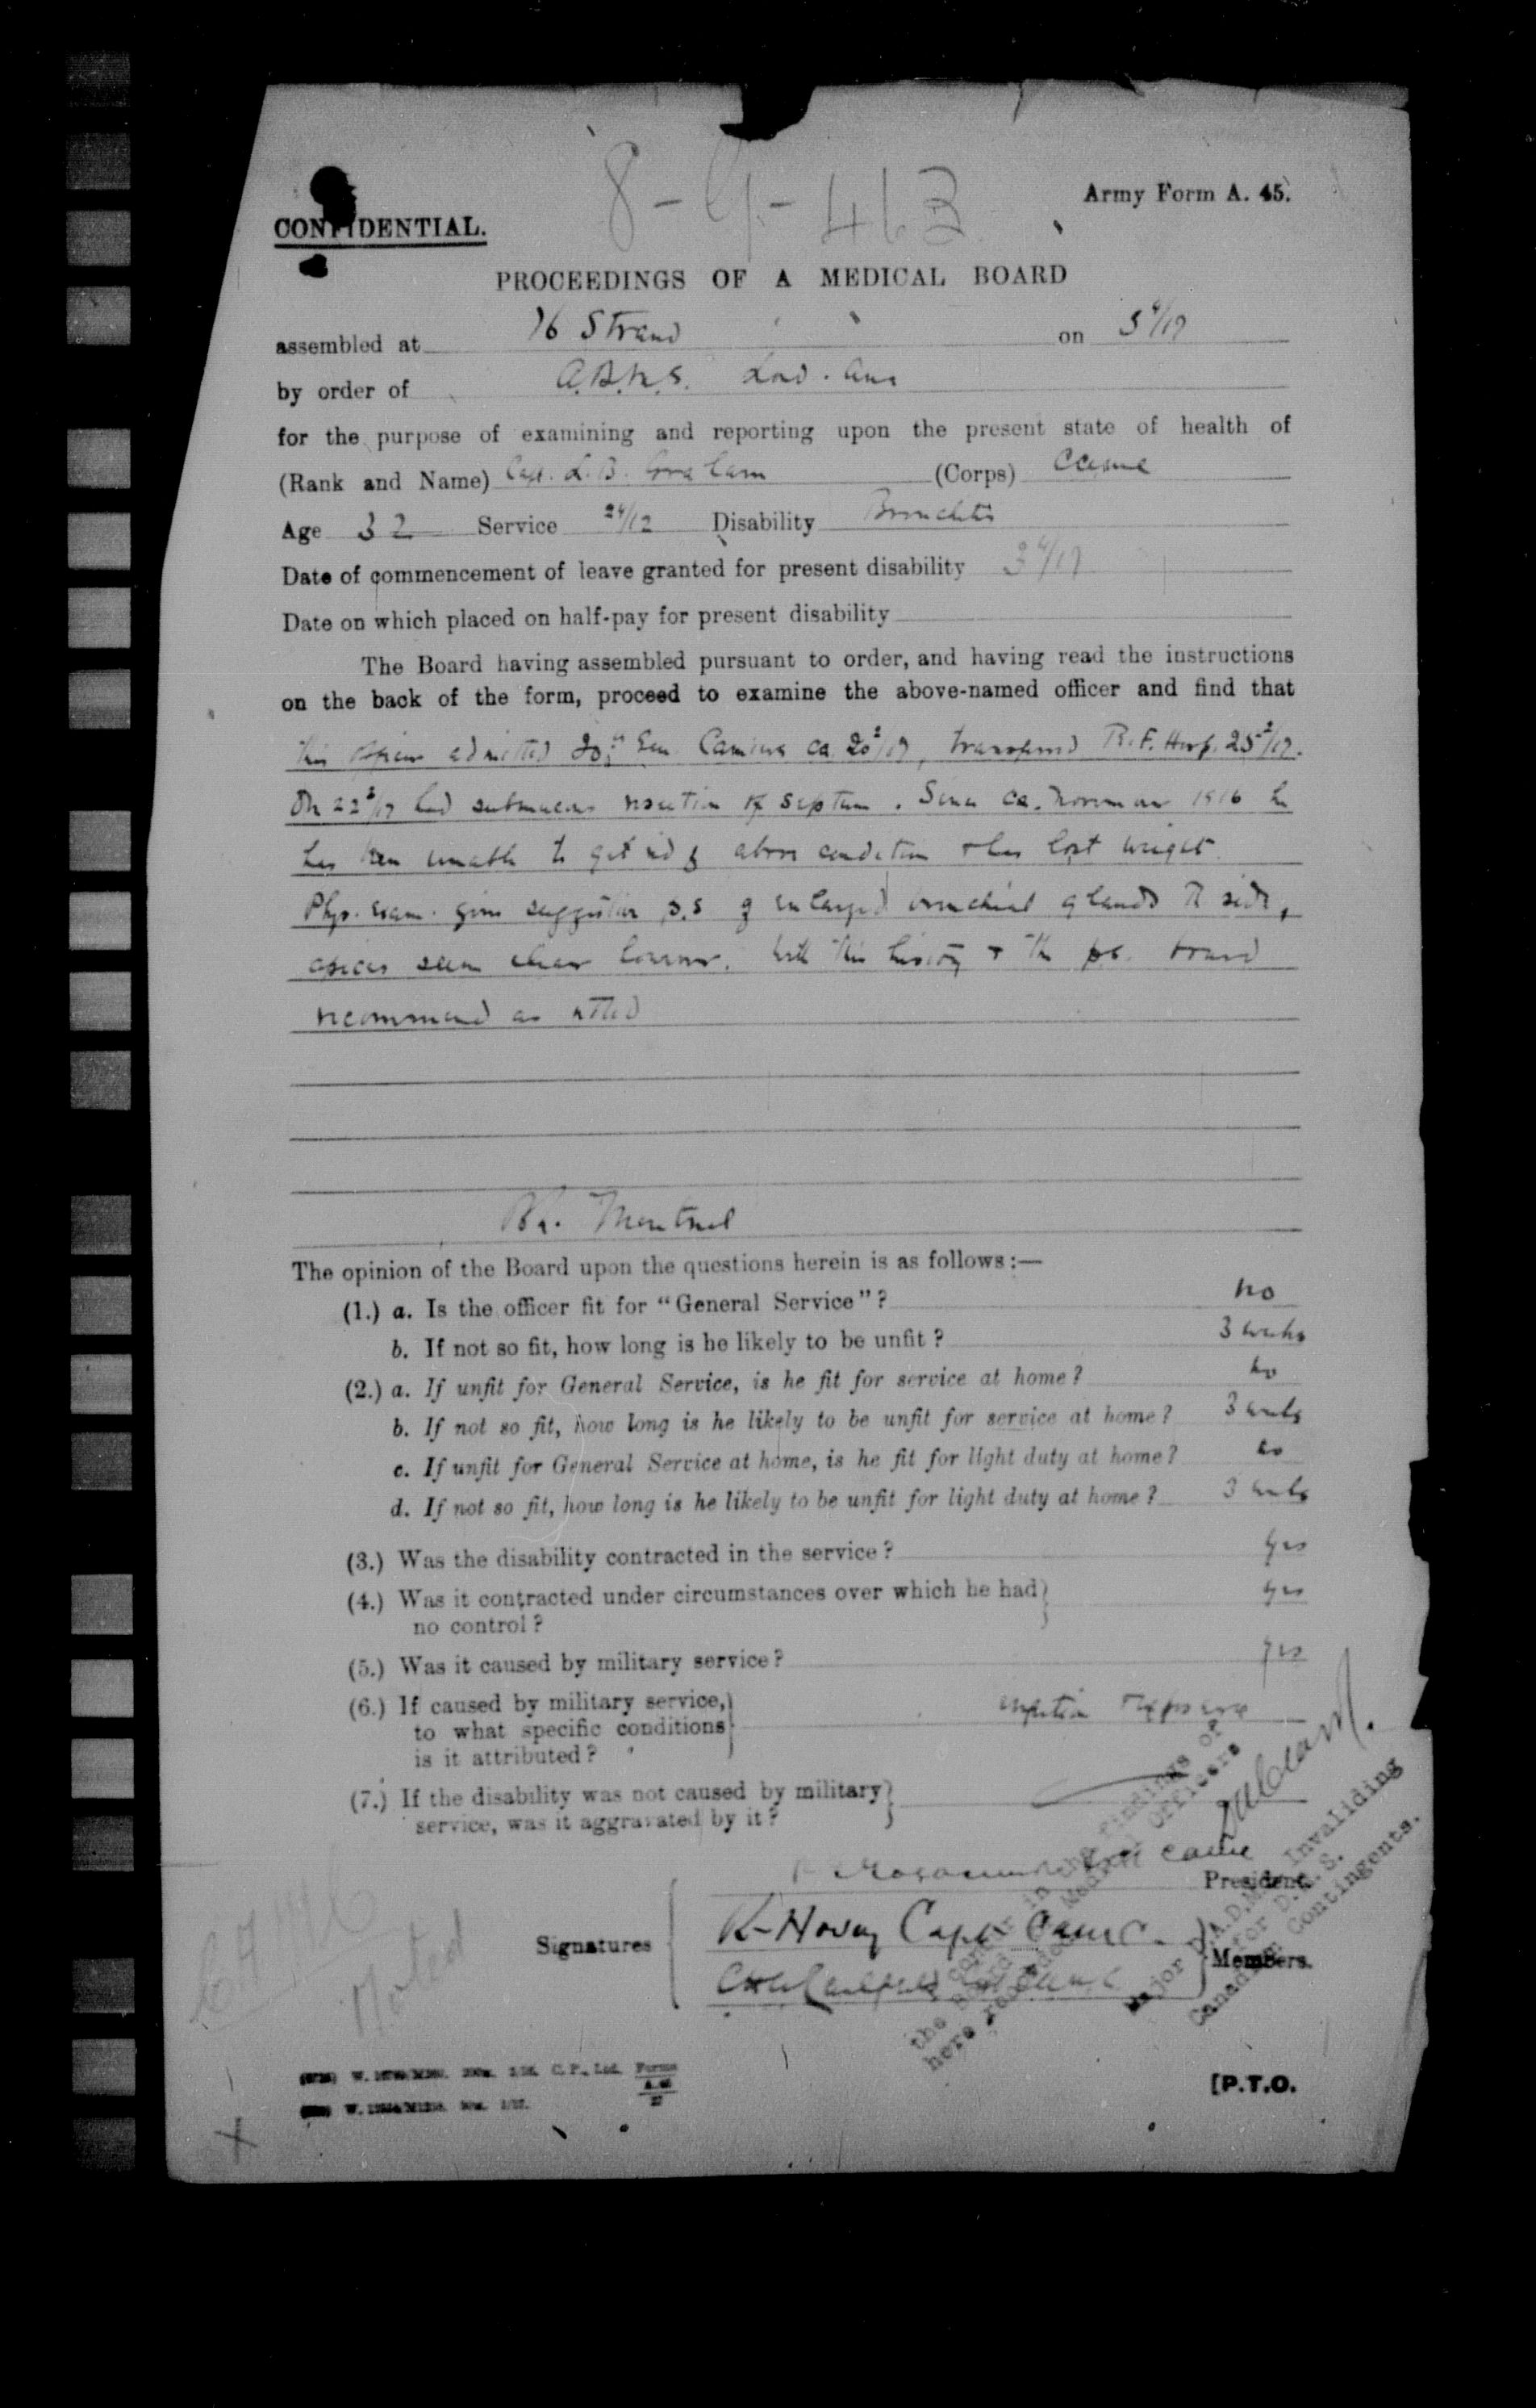 8-G-463
Army Form A. 45.
CONFIDENTIAL.
PROCEEDINGS OF A MEDICAL BOARD
assembled at 76 Strand on 5 4/17
by order of A.D.M.S. Lond. Area
for the purpose of examining and reporting upon the present state of health of
(Rank and Name) Capt. L. B. Graham (Corps) CAMC
Age 32 Service 24/12 Disability Bronchitis
Date of commencement of leave granted for present disability 3 4/17
Date on which placed on half-pay for present disability
The Board having assembled pursuant to order, and having read the instructions
on the back of the form, proceed to examine the above-named officer and find that
This officer admitted 20th Gen. Camiers ca. 20 2/17, transferred R.F. Hosp. 25 2/17.
On 22 3/17 had submucous resection of septum. Since ca. November 1916 he
has been unable to get rid of above condition & has lost weight.
Phys. exam. gives suggestive of enlarged bronchial glands R side,
apices seem clear however. With this history & the board
recommend as noted
Montreal
The opinion of the Board upon the questions herein is as follows:—
(1.) a. Is the officer fit for "General Service"? no
b. If not so fit, how long is he likely to be unfit? 3 weeks
(2.) a. If unfit for General Service, is he fit for service at home? no
b. If not so fit, how long is he likely to be unfit for service at home? 3 weeks
c. If unfit for General Service at home, is he fit for light duty at home? no
d. If not so fit, how long is he likely to be unfit for light duty at home? 3 weeks
(3.) Was the disability contracted in the service? yes
(4.) Was it contracted under circumstances over which he had yes
no control?
(5.) Was it caused by military service? yes
(6.) If caused by military service,
to what specific conditions infection & exposure
is it attributed?
(7.) If the disability was not caused by military
service, was it aggravated by it?
CAMC
President.
Signatures R Hovey Capt CAMC.
Members.
I concur in the findings of
the Board of Medical Officers
here recorded
Major D.A.D.M.S. Invaliding
for D.M.S.
Canadian Contingents.
Noted
C.P., Ltd. Forms
[P.T.O.
X